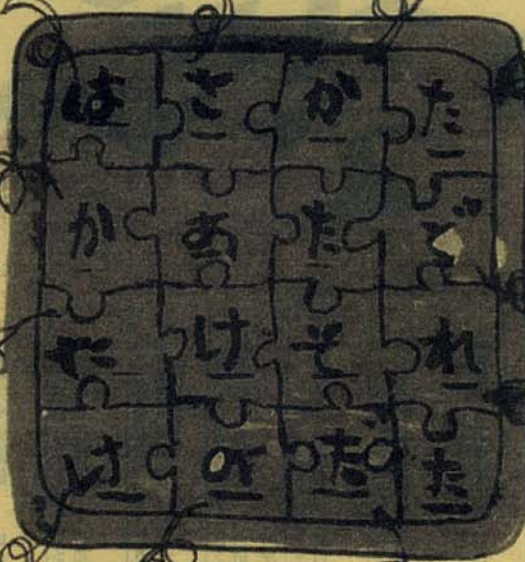 はさかた
かあたど
だけそれ
けのだた